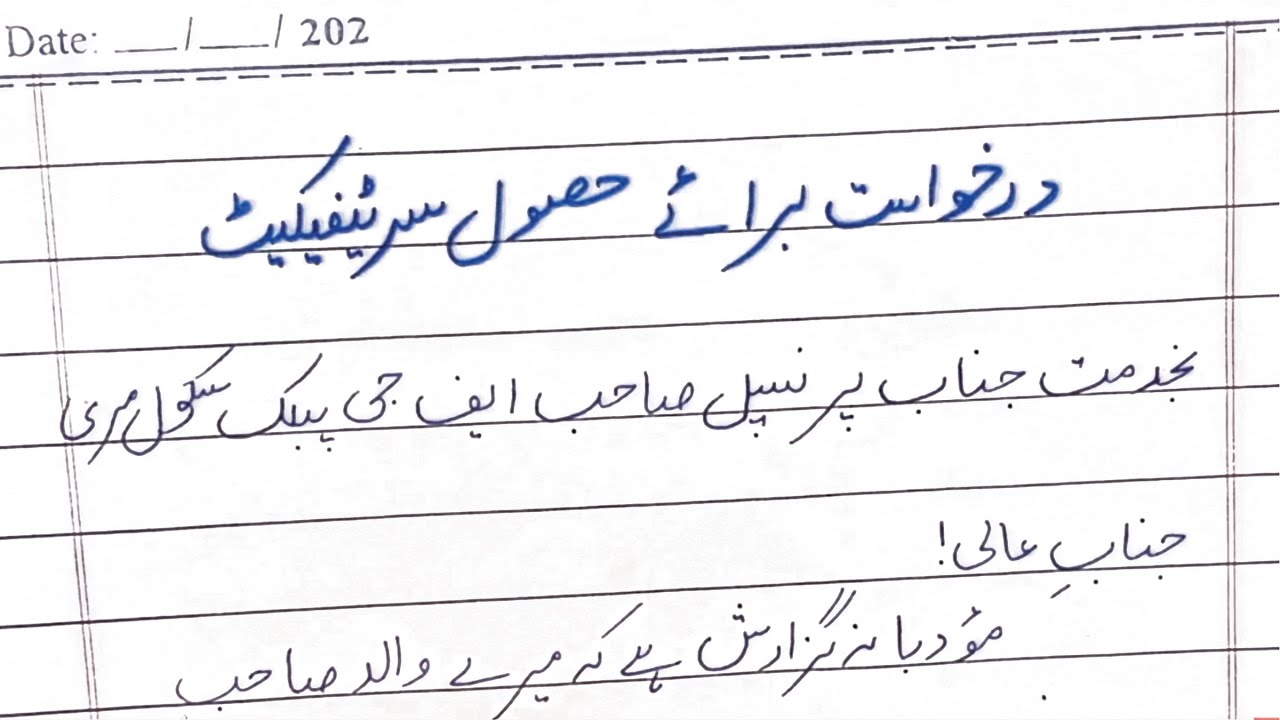 Date: ___/___/ 202
درخواست برائے حصول سرٹیفیکیٹ
بخدمت جناب پرنسپل صاحب ایف جی پبلک سکول مری
جنابِ عالی!
مؤدبانہ گزارش ہے کہ میرے والد صاحب